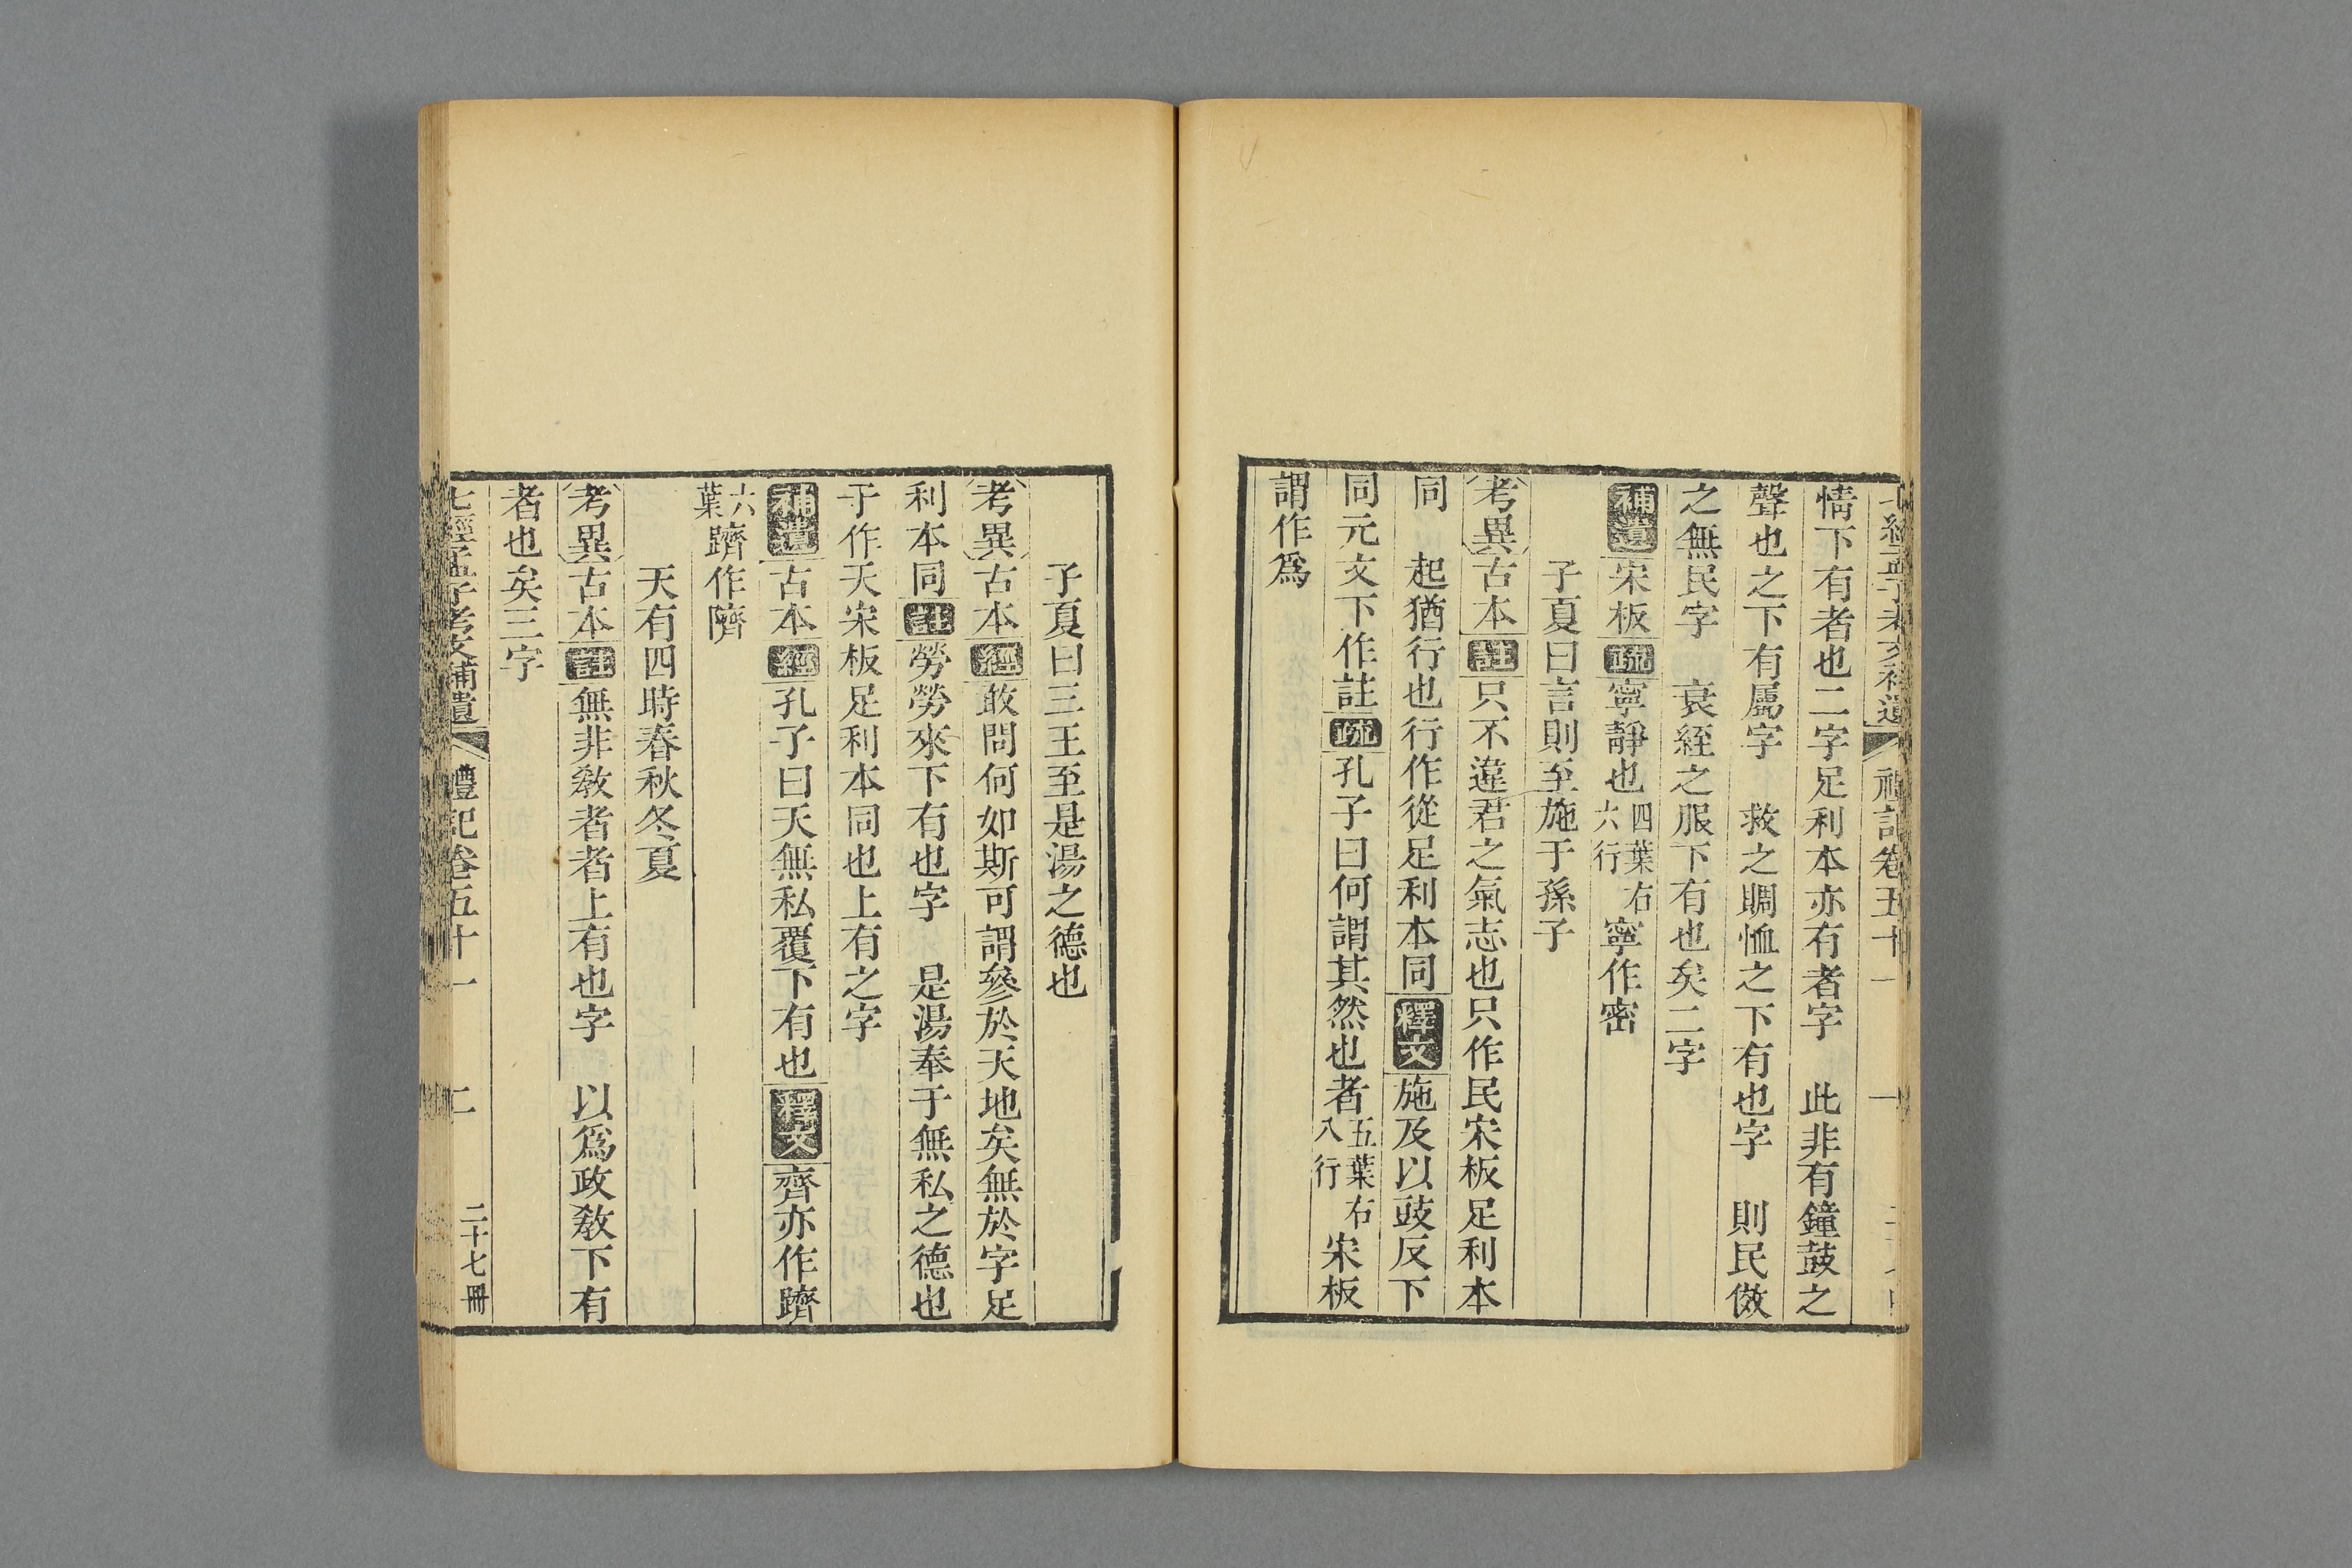 情下有者也二字足利本亦有者字　此非有鐘鼓之
聲也之下有屬字　救之賙恤之下有也字　則民傚
之無民字　衰絰之服下有也矣二字
補遺宋板疏寧靜也四葉右六行寧作密
子夏曰言則至施于孫子
考異古本註只不違君之氣志也只作民宋板足利本
同　起猶行也行作從足利本同釋文施及以豉反下
同元文下作註疏孔子曰何謂其然也者五葉右八行宋板
謂作爲
子夏曰三王至是湯之德也
考異古本經敢問何如斯可謂參於天地矣無於字足
利本同註勞勞來下有也字　是湯奉于無私之德也
于作天宋板足利本同也上有之字
補遺古本經孔子曰天無私覆下有也釋文齊亦作躋
六葉躋作隮
天有四時春秋冬夏
考異古本註無非敎者者上有也字　以爲政敎下有
者也矣三字
七經孟子考文補遺　禮記卷五十一　二　二十七冊